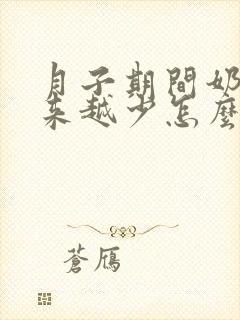 月子期間奶
來越少怎麼
蒼雁